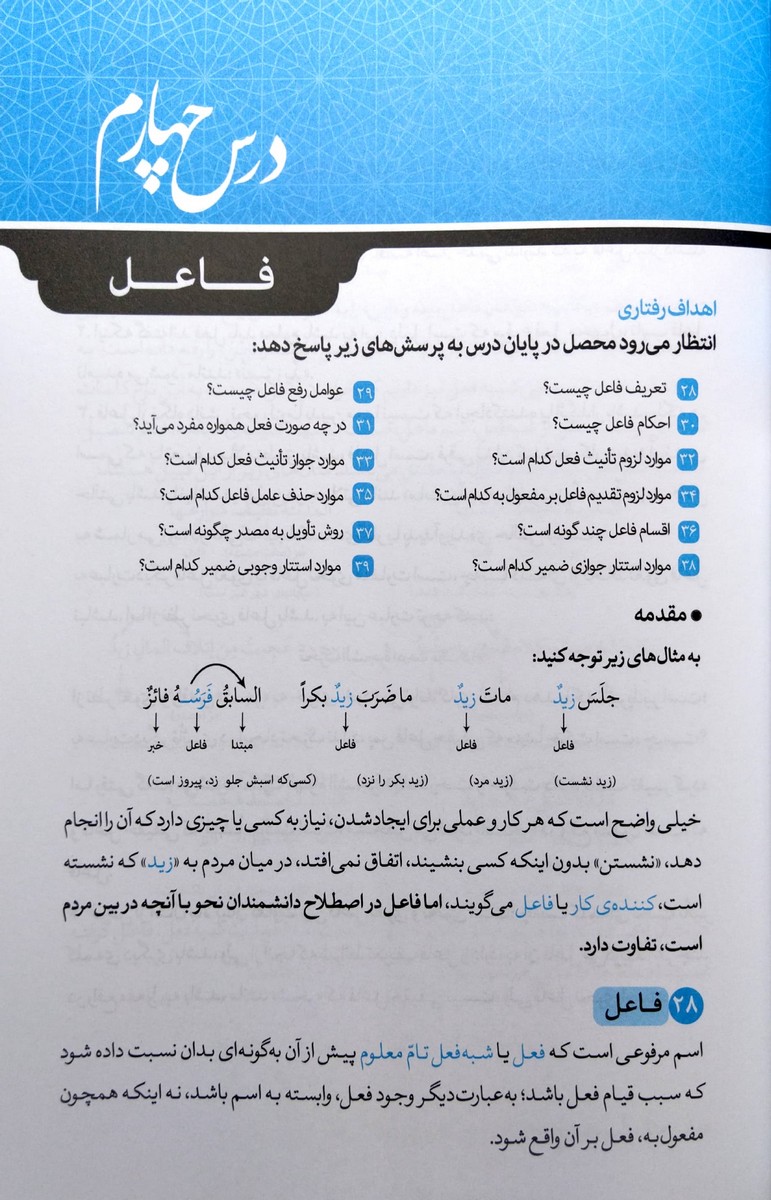 درس چهارم
فـاعـل
اهداف رفتاری
انتظار می‌رود محصل در پایان درس به پرسش‌های زیر پاسخ دهد:
۲۸ تعریف فاعل چیست؟ ۲۹ عوامل رفع فاعل چیست؟
۳۰ احکام فاعل چیست؟ ۳۱ در چه صورت فعل همواره مفرد می‌آید؟
۳۲ موارد لزوم تأنیث فعل کدام است؟ ۳۳ موارد جواز تأنیث فعل کدام است؟
۳۴ موارد لزوم تقدیم فاعل بر مفعول به کدام است؟ ۳۵ موارد حذف عامل فاعل کدام است؟
۳۶ اقسام فاعل چند گونه است؟ ۳۷ روش تأویل به مصدر چگونه است؟
۳۸ موارد استتار جوازی ضمیر کدام است؟ ۳۹ موارد استتار وجوبی ضمیر کدام است؟
• مقدمه
به مثال‌های زیر توجه کنید:
جلَسَ زیدٌ ماتَ زیدٌ ما ضَرَبَ زیدٌ بکراً السابقُ فَرَسُهُ فائزٌ
فاعل فاعل فاعل مبتدا فاعل خبر
(زید نشست) (زید مرد) (زید بکر را نزد) (کسی‌که اسبش جلو زد، پیروز است)
خیلی واضح است که هر کار و عملی برای ایجادشدن، نیاز به کسی یا چیزی دارد که آن را انجام
دهد، «نشستن» بدون اینکه کسی بنشیند، اتفاق نمی‌افتد، در میان مردم به «زید» که نشسته
است، کننده‌ی کار یا فاعل می‌گویند، اما فاعل در اصطلاح دانشمندان نحو با آنچه در بین مردم
است، تفاوت دارد.
۲۸ فـاعل
اسم مرفوعی است که فعل یا شبه‌فعل تامّ معلوم پیش از آن به‌گونه‌ای بدان نسبت داده شود
که سبب قیام فعل باشد؛ به‌عبارت‌دیگر وجود فعل، وابسته به اسم باشد، نه اینکه همچون
مفعول‌به، فعل بر آن واقع شود.